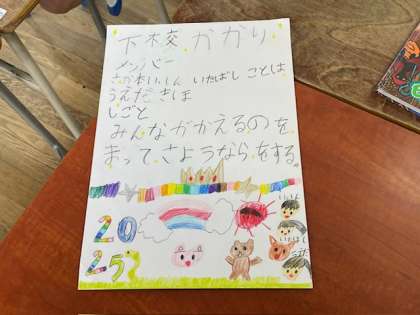 下校かかり
メンバー
さかもといっしん いたばし ことは
うえだ きほ
しごと
みんながかえるのを
まって さようならをする。
20
25